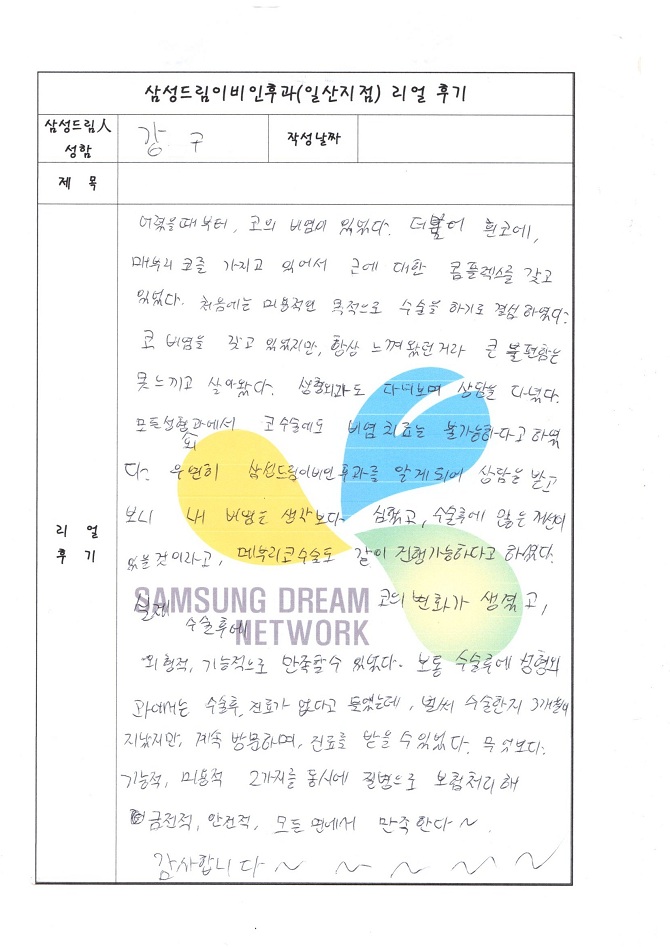 삼성드림이비인후과(일산지점) 리얼 후기
삼성드림人 성함
강 구
작성날짜
제 목
리 얼 후 기
어렸을때부터, 코의 비염이 있었다. 더불어 휜코에,
매부리 코를 가지고 있어서 코에 대한 콤플렉스를 갖고
있었다. 처음에는 미용적인 목적으로 수술을 하기로 결심하였다.
코 비염을 갖고 있었지만, 항상 느껴왔던거라 큰 불편함은
못느끼고 살아왔다. 성형외과도 다녀보며 상담을 다녔다.
모든성형외과에서 코수술에도 비염치료는 불가능하다고 하였
다. 우연히 삼성드림이비인후과를 알게되어 상담을 받고
보니 내 비염은 생각보다 심했고, 수술후에 많은 개선이
있을것이라고, 매부리코수술도 같이 진행가능하다고 하셨다.
실제 수술후에 코의 변화가 생겼고,
SAMSUNG DREAM
NETWORK
외형적, 기능적으로 만족할수 있었다. 보통 수술후에 성형외
과에서는 수술후, 진료가 없다고 들었는데, 벌써 수술한지 3개월이
지났지만, 계속 방문하며, 진료를 받을 수 있었다. 무엇보다.
기능적, 미용적 2가지를 동시에 질병으로 보험처리해
금전적, 안전적, 모든 면에서 만족한다~.
감사합니다~ ~ ~ ~ ~